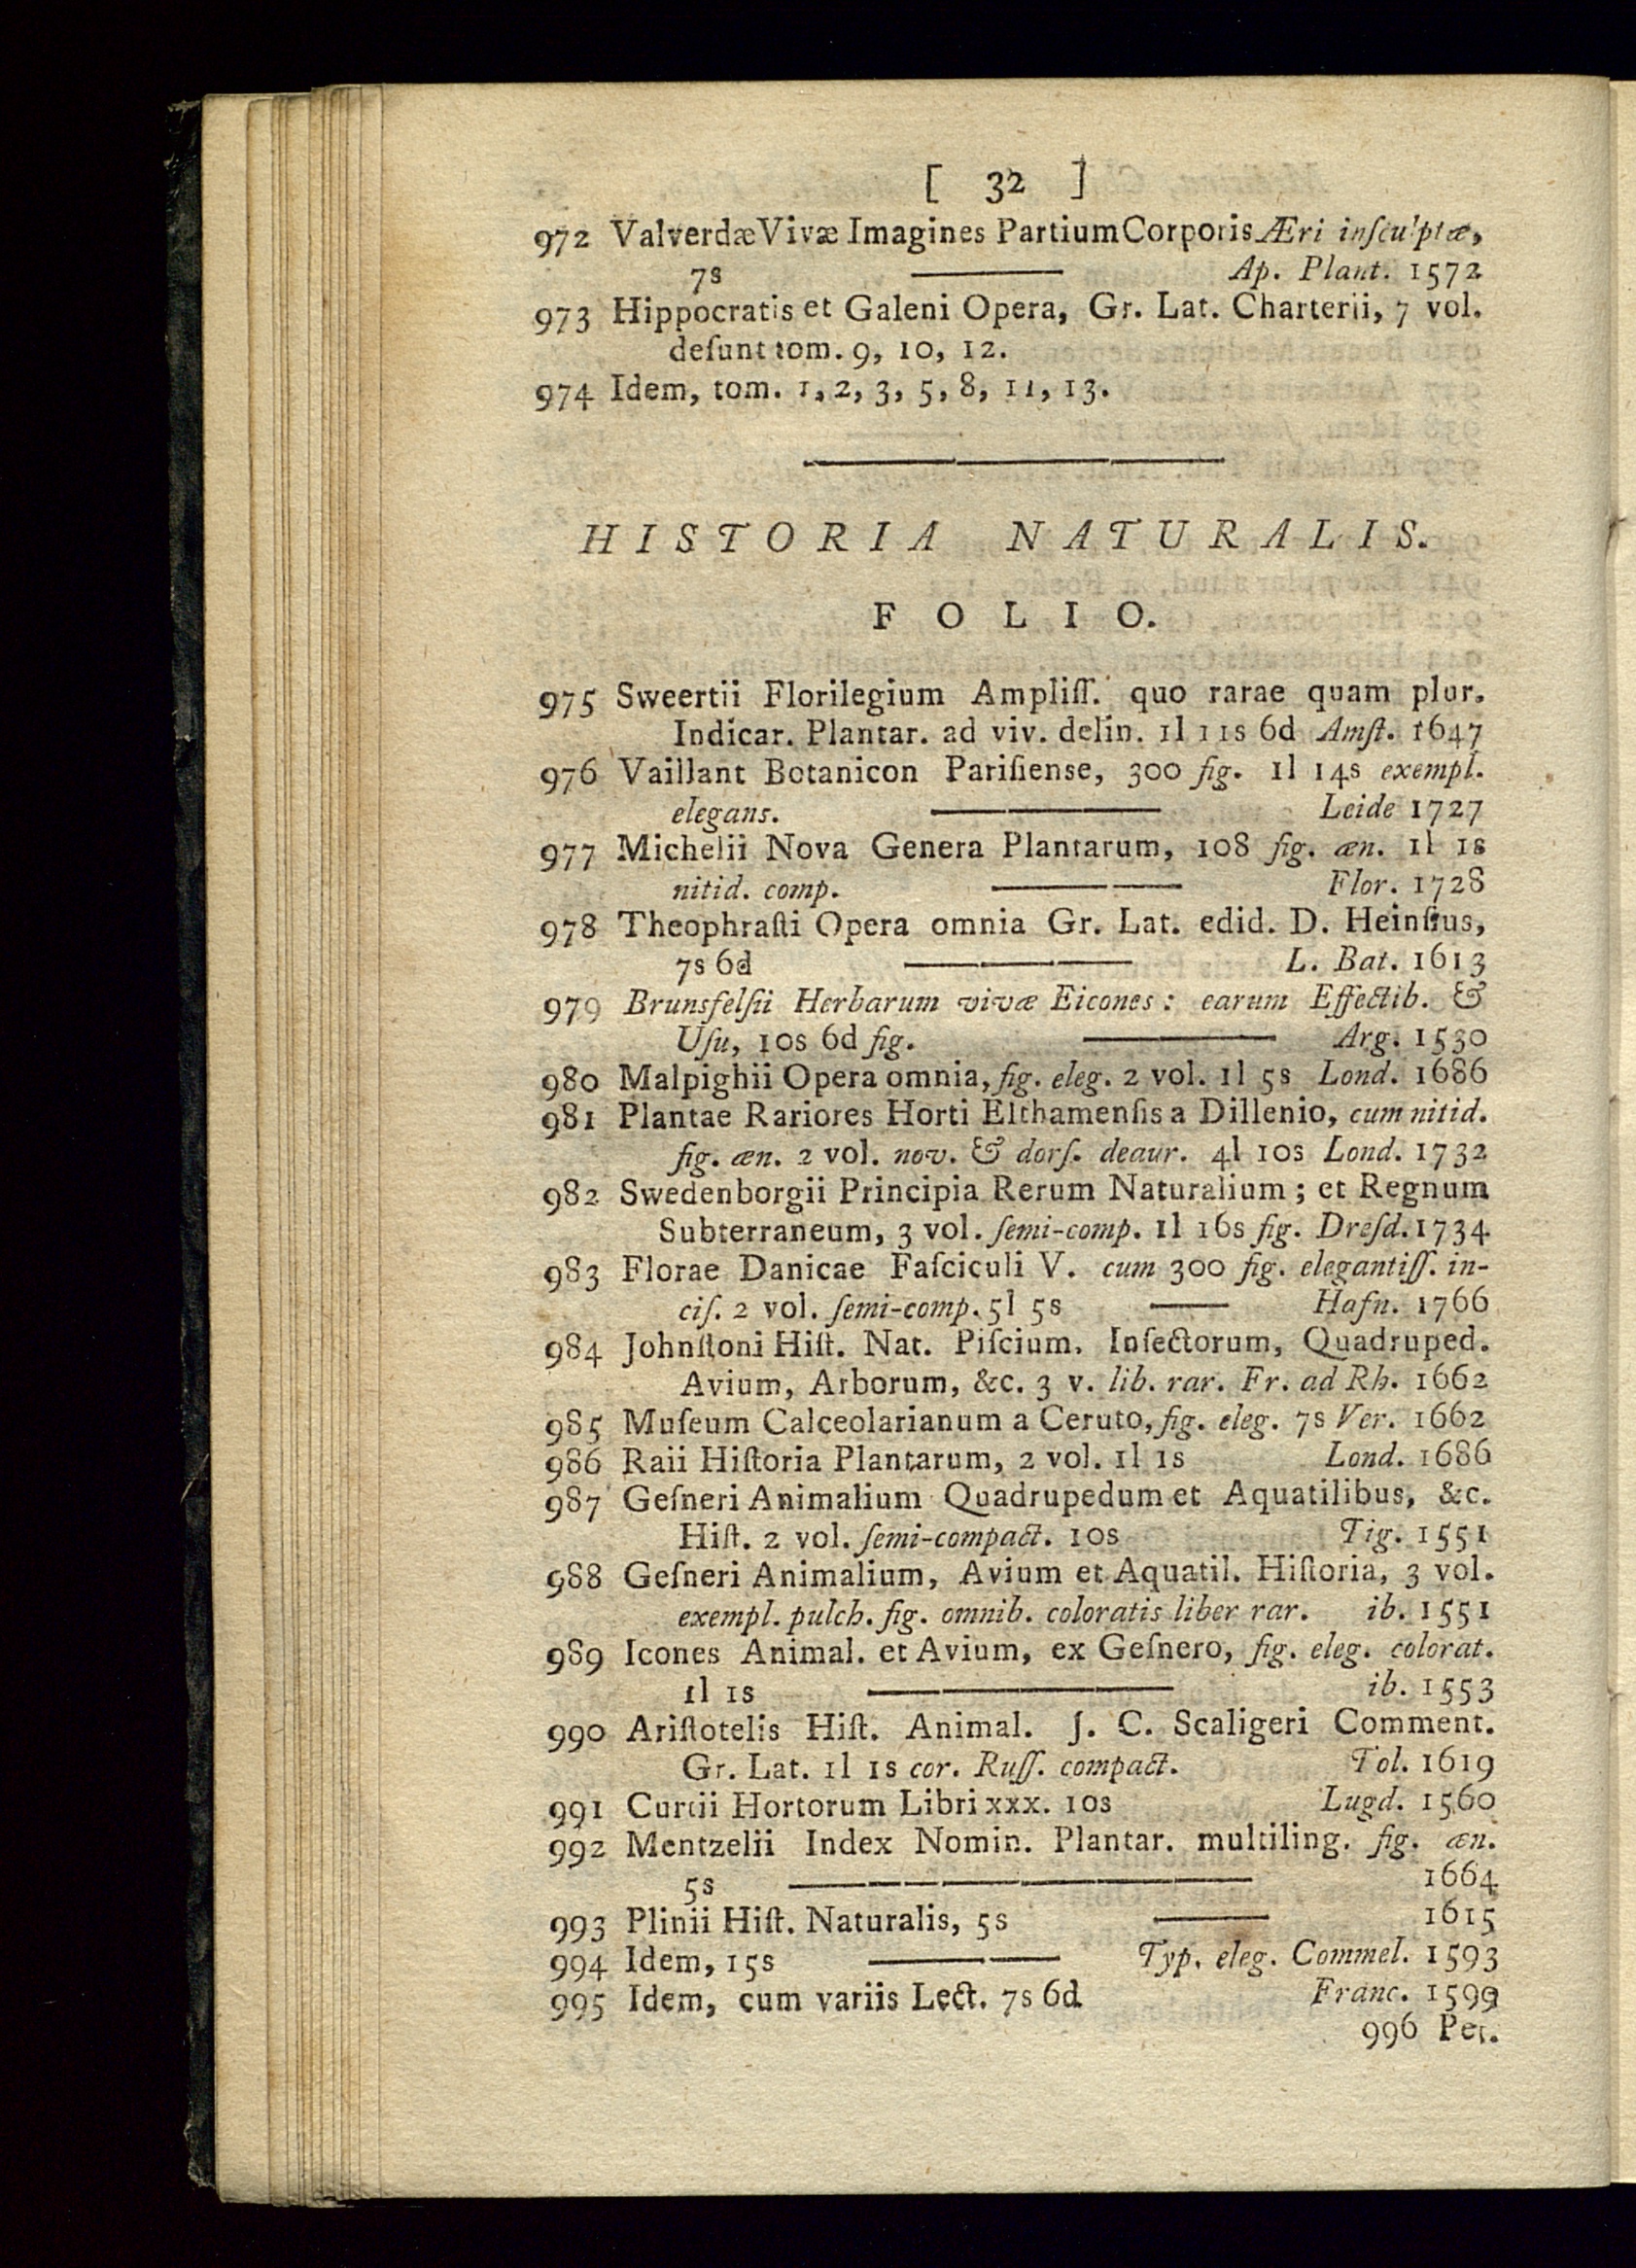 [ 32 ]
972 Valverdæ Vivæ Imagines Partium Corporis Æri inſculptæ,
7s Ap. Plant. 1572
973 Hippocratis et Galeni Opera, Gr. Lat. Charterii, 7 vol.
deſunt tom. 9, 10, 12.
974 Idem, tom. 1, 2, 3, 5, 8, 11, 13.
HISTORIA NATURALIS.
FOLIO.
975 Sweertii Florilegium Ampliſſ. quo rarae quam plur.
Indicar. Plantar. ad viv. delin. 1l 11s 6d Amſt. 1647
976 Vaillant Botanicon Pariſienſe, 300 fig. 1l 14s exempl.
elegans. Leide 1727
977 Michelii Nova Genera Plantarum, 108 fig. æn. 1l 1s
nitid. comp. Flor. 1728
978 Theophraſti Opera omnia Gr. Lat. edid. D. Heinſius,
7s 6d L. Bat. 1613
979 Brunsfelſii Herbarum vivæ Eicones: earum Effectib. &
Uſu, 10s 6d fig. Arg. 1530
980 Malpighii Opera omnia, fig. eleg. 2 vol. 1l 5s Lond. 1686
981 Plantae Rariores Horti Elthamenſis a Dillenio, cum nitid.
fig. æn. 2 vol. nov. & dorſ. deaur. 4l 10s Lond. 1732
982 Swedenborgii Principia Rerum Naturalium; et Regnum
Subterraneum, 3 vol. ſemi-comp. 1l 16s fig. Dreſd. 1734
983 Florae Danicae Faſciculi V. cum 300 fig. elegantiſſ. in-
ciſ. 2 vol. ſemi-comp. 5l 5s Hafn. 1766
984 Johnſtoni Hiſt. Nat. Piſcium, Inſectorum, Quadruped.
Avium, Arborum, &c. 3 v. lib. rar. Fr. ad Rh. 1662
985 Muſeum Calceolarianum a Ceruto, fig. eleg. 7s Ver. 1662
986 Raii Hiſtoria Plantarum, 2 vol. 1l 1s Lond. 1686
987 Geſneri Animalium Quadrupedum et Aquatilibus, &c.
Hiſt. 2 vol. ſemi-compact. 10s Tig. 1551
988 Geſneri Animalium, Avium et Aquatil. Hiſtoria, 3 vol.
exempl. pulch. fig. omnib. coloratis liber rar. ib. 1551
989 Icones Animal. et Avium, ex Geſnero, fig. eleg. colorat.
1l 1s ib. 1553
990 Ariſtotelis Hiſt. Animal. J. C. Scaligeri Comment.
Gr. Lat. 1l 1s cor. Ruſſ. compact. Tol. 1619
991 Curtii Hortorum Libri xxx. 10s Lugd. 1560
992 Mentzelii Index Nomin. Plantar. multiling. fig. æn.
5s 1664
993 Plinii Hiſt. Naturalis, 5s 1615
994 Idem, 15s Typ. eleg. Commel. 1593
995 Idem, cum variis Lect. 7s 6d Franc. 1599
996 Pet.